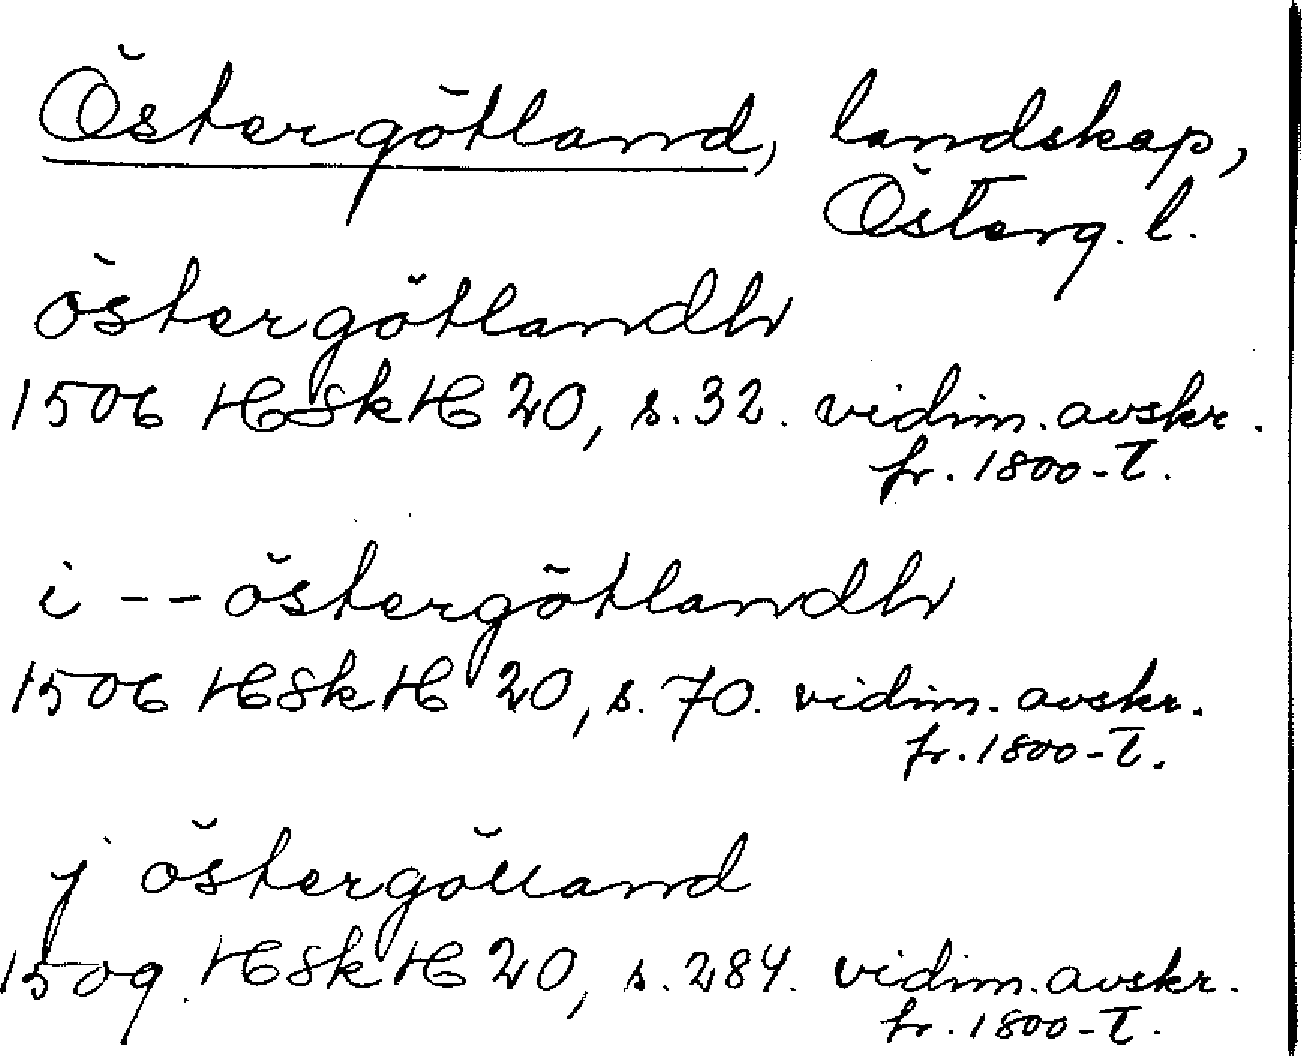 Östergötland, landskap,
Österg. l.
östergötlandh
1506 HSkH 20, s. 32. vidim. avskr.
fr. 1800-t.
i -- östergötlandh
1506 HSkH 20, s. 70. vidim. avskr.
fr. 1800-t.
j östergölland
1509 HSkH 20, s. 284. vidim. avskr.
fr. 1800-t.